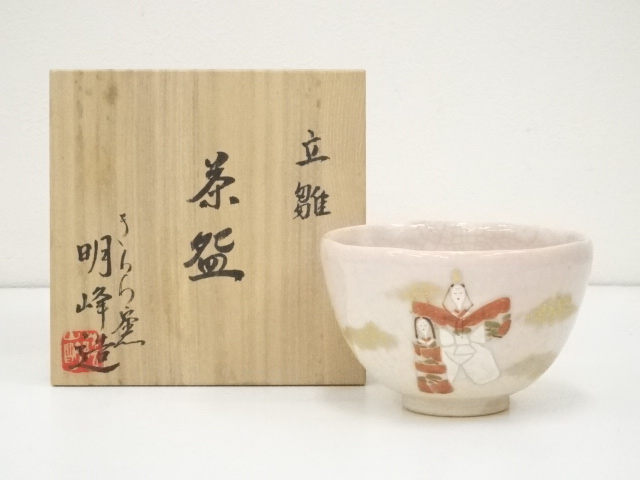 立雛
茶盌
きらら窯
明峰造